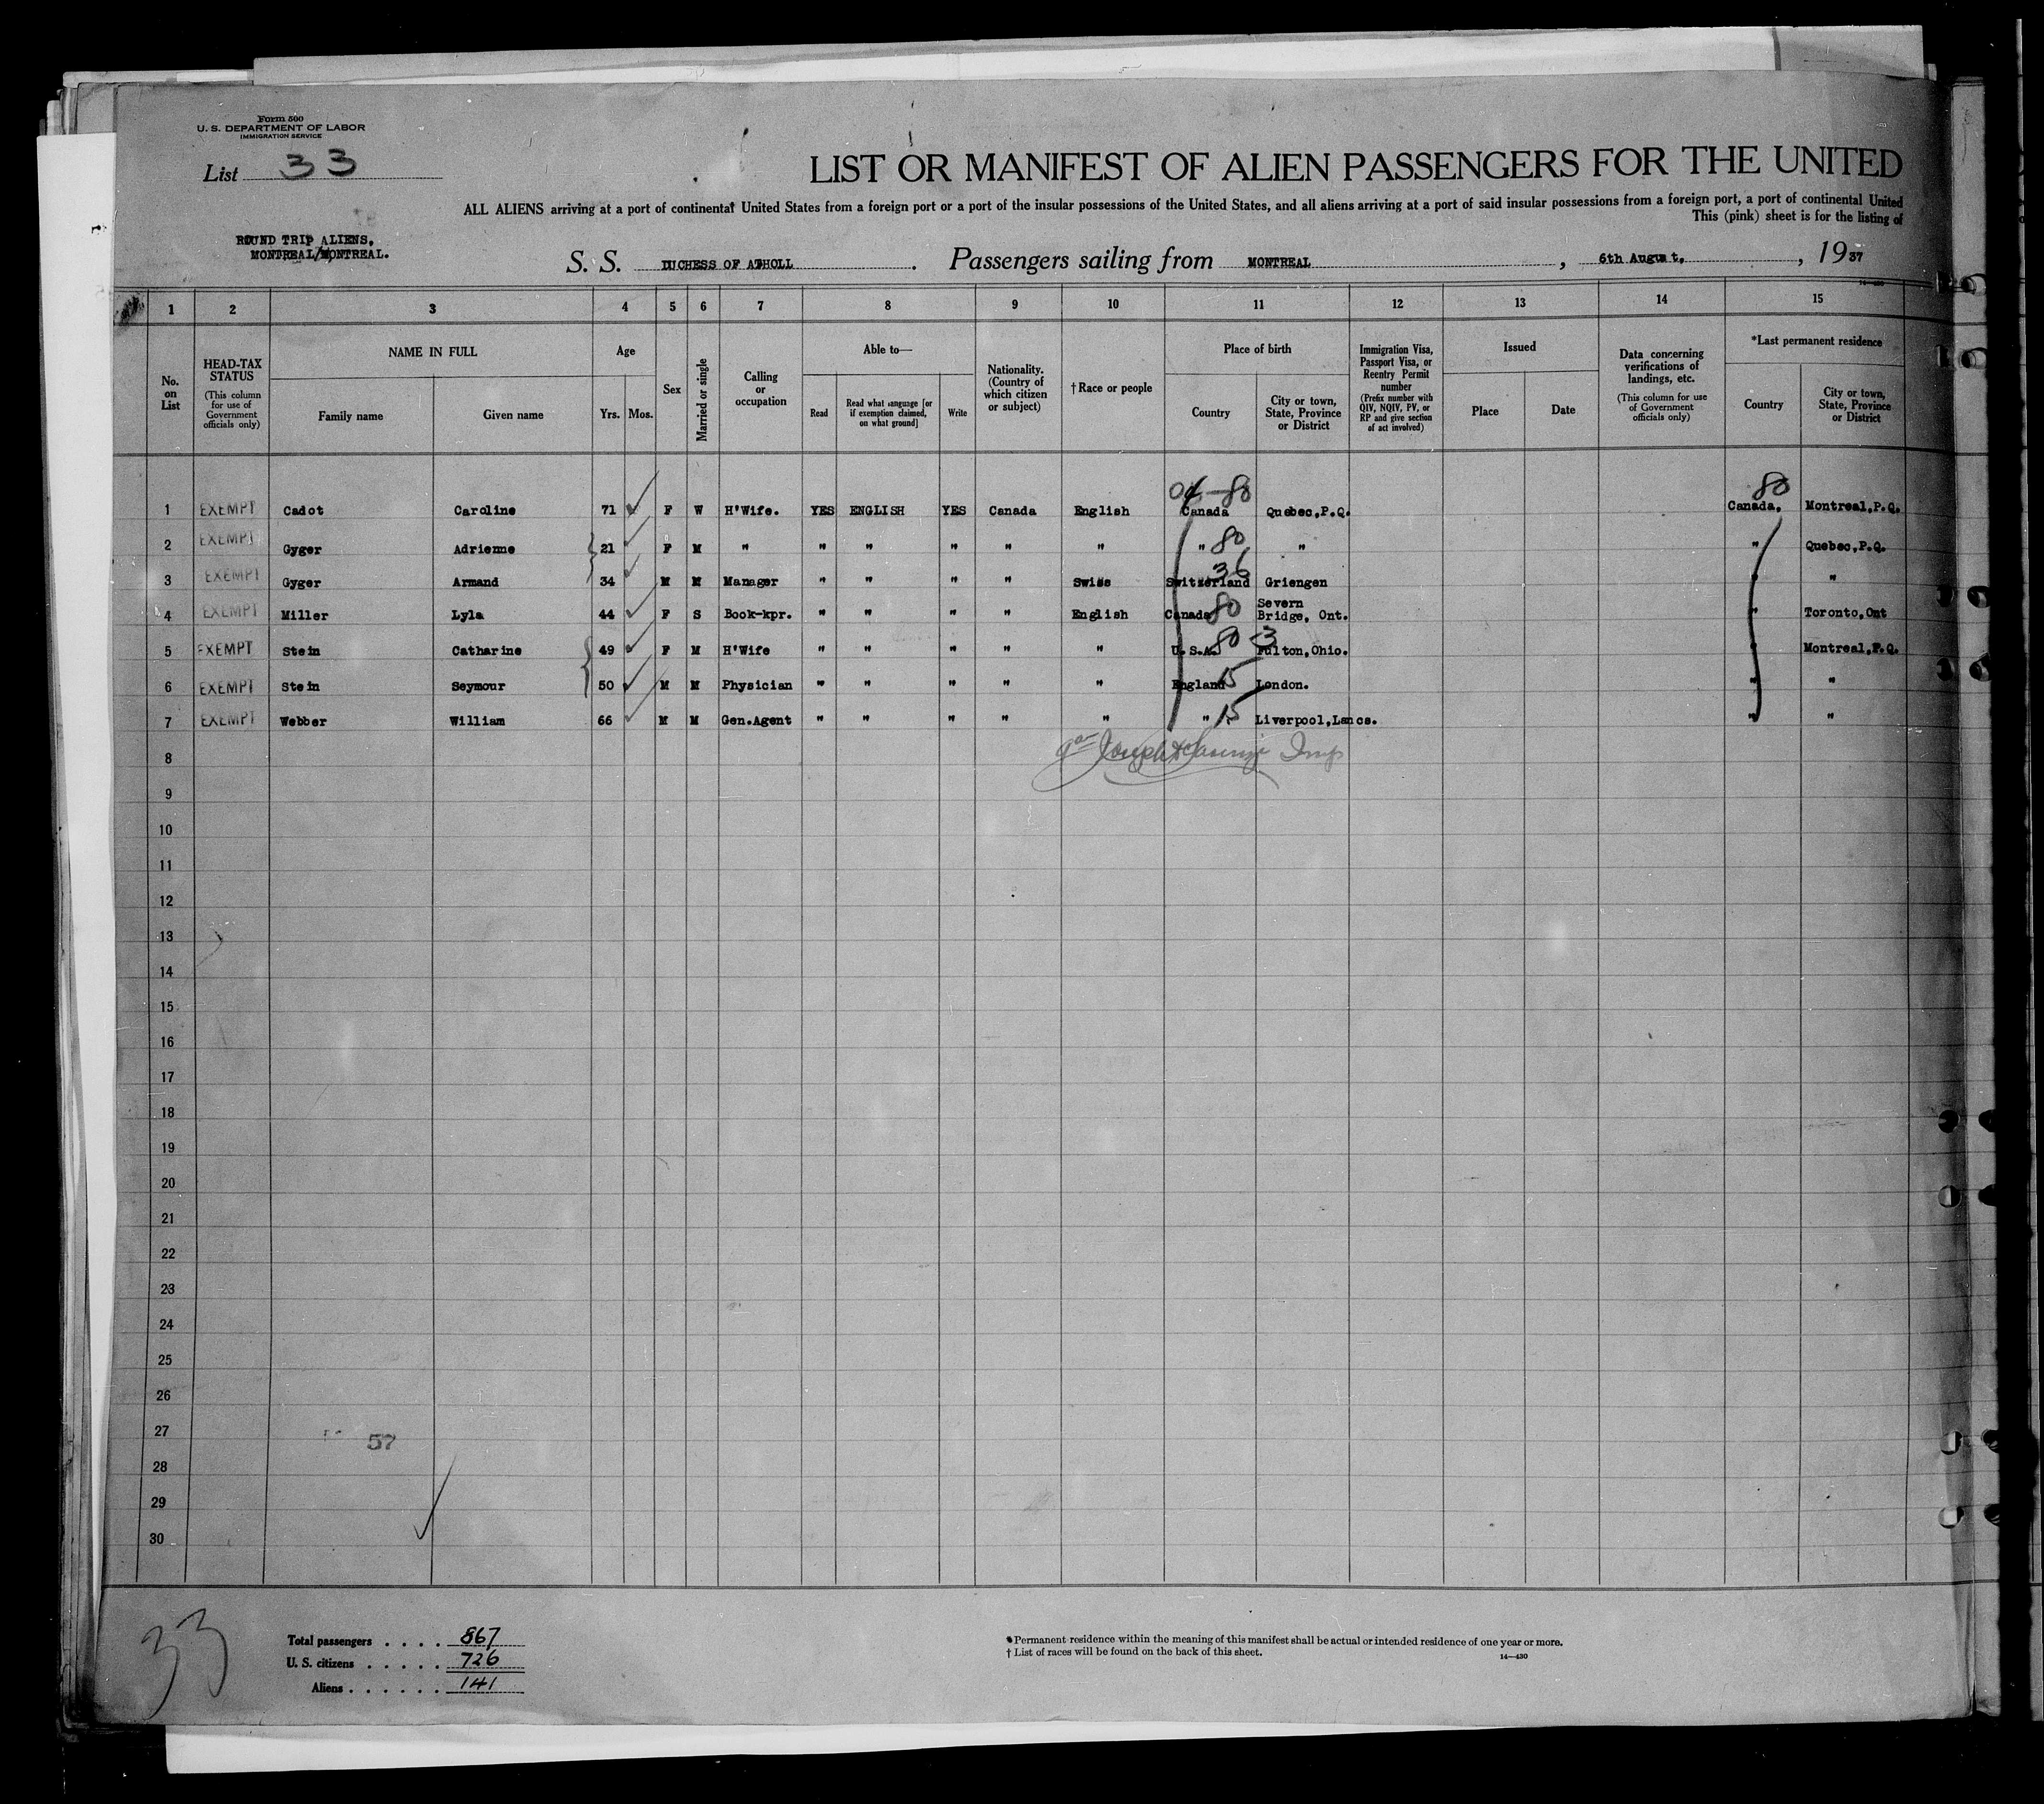 Form 500
U. S. DEPARTMENT OF LABOR
IMMIGRATION SERVICE
List 33
LIST OR MANIFEST OF ALIEN PASSENGERS FOR THE UNITED
ALL ALIENS arriving at a port of continental United States from a foreign port or a port of the insular possessions of the United States, and all aliens arriving at a port of said insular possessions from a foreign port, a port of continental United
This (pink) sheet is for the listing of
ROUND TRIP ALIENS,
MONTREAL/MONTREAL.
S. S. DUCHESS OF ATHOLL. Passengers sailing from MONTREAL, 6th August, 1937
1 2 3 4 5 6 7 8 9 10 11 12 13 14 15
No. on List
HEAD-TAX STATUS (This column for use of Government officials only)
NAME IN FULL
Family name Given name
Age
Yrs. Mos.
Sex
Married or single
Calling or occupation
Able to—
Read Read what language [or if exemption claimed, on what ground] Write
Nationality. (Country of which citizen or subject)
† Race or people
Place of birth
Country City or town, State, Province or District
Immigration Visa, Passport Visa, or Reentry Permit number (Prefix number with QIV, NQIV, PV, or RP and give section of act involved)
Issued
Place Date
Data concerning verifications of landings, etc. (This column for use of Government officials only)
*Last permanent residence
Country City or town, State, Province or District
80 80
1 EXEMPT Cadot Caroline 71 F W H'Wife. YES ENGLISH YES Canada English Canada Quebec,P.Q. Canada. Montreal,P.Q.
2 EXEMPT Gyger Adrienne 21 F M " " " " " " " 80 " " Quebec,P.Q.
3 EXEMPT Gyger Armand 34 M M Manager " " " " Swiss Switzerland 36 Griengen " "
4 EXEMPT Miller Lyla 44 F S Book-kpr. " " " " English Canada 80 Severn Bridge, Ont. " Toronto,Ont
5 EXEMPT Stein Catharine 49 F M H'Wife " " " " " U.S.A. 80 3 Fulton,Ohio. " Montreal,P.Q.
6 EXEMPT Stein Seymour 50 M M Physician " " " " " England 15 London. " "
7 EXEMPT Webber William 66 M M Gen.Agent " " " " " " 15 Liverpool,Lancs. " "
8
9
10
11
12
13
14
15
16
17
18
19
20
21
22
23
24
25
26
27
57
28
29
30
33
Total passengers . . . . 867
U. S. citizens . . . . . 726
Aliens . . . . . . 141
*Permanent residence within the meaning of this manifest shall be actual or intended residence of one year or more.
† List of races will be found on the back of this sheet.
14—430